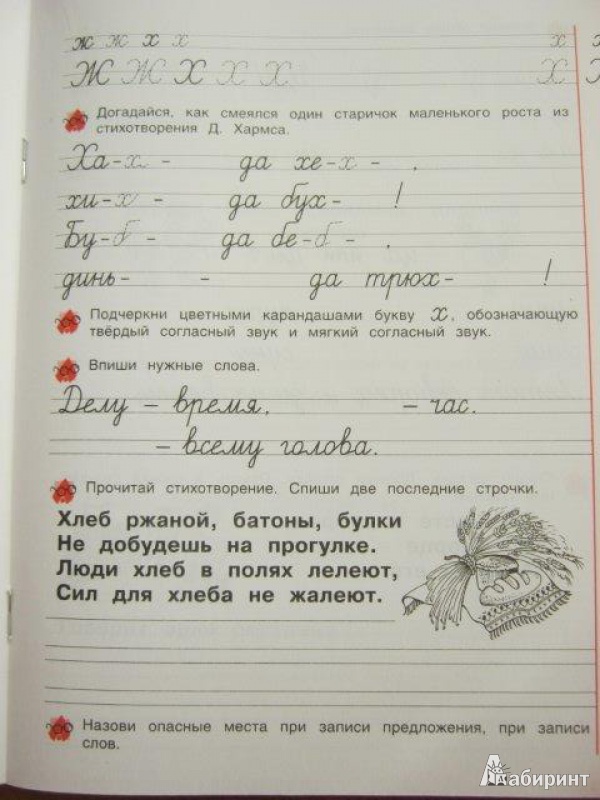 ж ж х х х х
Ж Ж Х Х Х Х Х
Догадайся, как смеялся один старичок маленького роста из
стихотворения Д. Хармса.
Ха-х - да хе-х - .
хи-х - да бух- !
Бу-б - да бе-б - .
динь- - да трюх- !
Подчеркни цветными карандашами букву х, обозначающую
твёрдый согласный звук и мягкий согласный звук.
Впиши нужные слова.
Делу – время, – час.
– всему голова.
Прочитай стихотворение. Спиши две последние строчки.
Хлеб ржаной, батоны, булки
Не добудешь на прогулке.
Люди хлеб в полях лелеют,
Сил для хлеба не жалеют.
Назови опасные места при записи предложения, при записи
слов.
Лабиринт